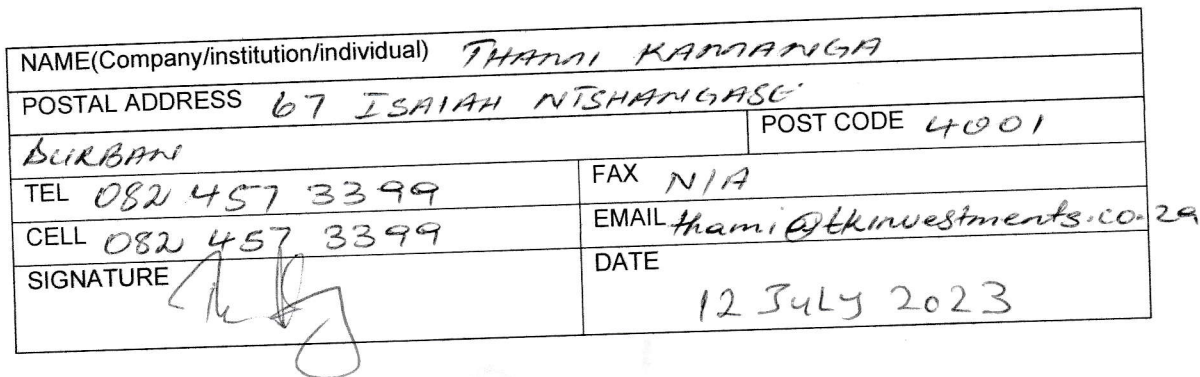 NAME(Company/institution/individual) THAMI KAMANGA
POSTAL ADDRESS 67 ISAIAH NTSHANGASE
DURBAN POST CODE 4001
TEL 082 457 3399 FAX N/A
CELL 082 457 3399 EMAIL thami@tkinvestments.co.za
SIGNATURE DATE
12 JULY 2023